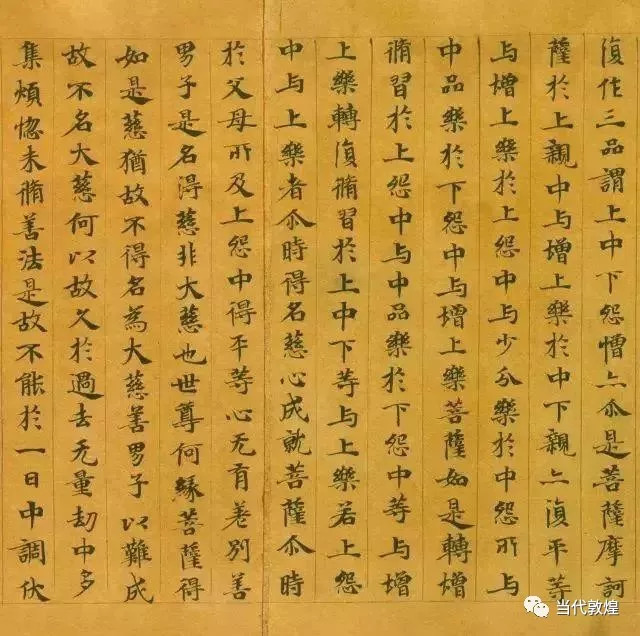 復作三品謂上中下怨憎亦尒是菩薩摩訶
薩於上親中与增上樂於中下親亦復平等
与增上樂於上怨中与少分樂於中怨所与
中品樂於下怨中与增上樂菩薩如是轉增
脩習於上怨中与中品樂於下怨中等与增
上樂轉復脩習於上中下等与上樂若上怨
中与上樂者尒時得名慈心成就菩薩尒時
於父母所及上怨中得平等心无有差別善
男子是名得慈非大慈也世尊何緣菩薩得
如是慈猶故不得名為大慈善男子以難成
故不名大慈何以故久於過去无量劫中多
集煩惱未脩善法是故不能於一日中調伏
当代敦煌